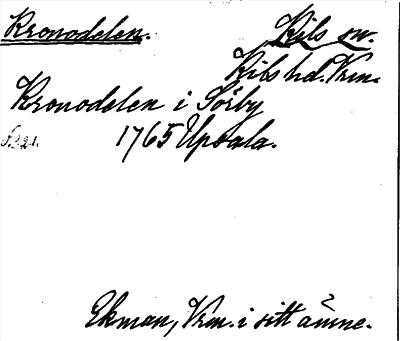 Kronodelen. Kils sn.
Kils hd. Vrm.
Kronodelen i Sörby
1765 Upsala.
Ekman, Vrm. i sitt ämne.